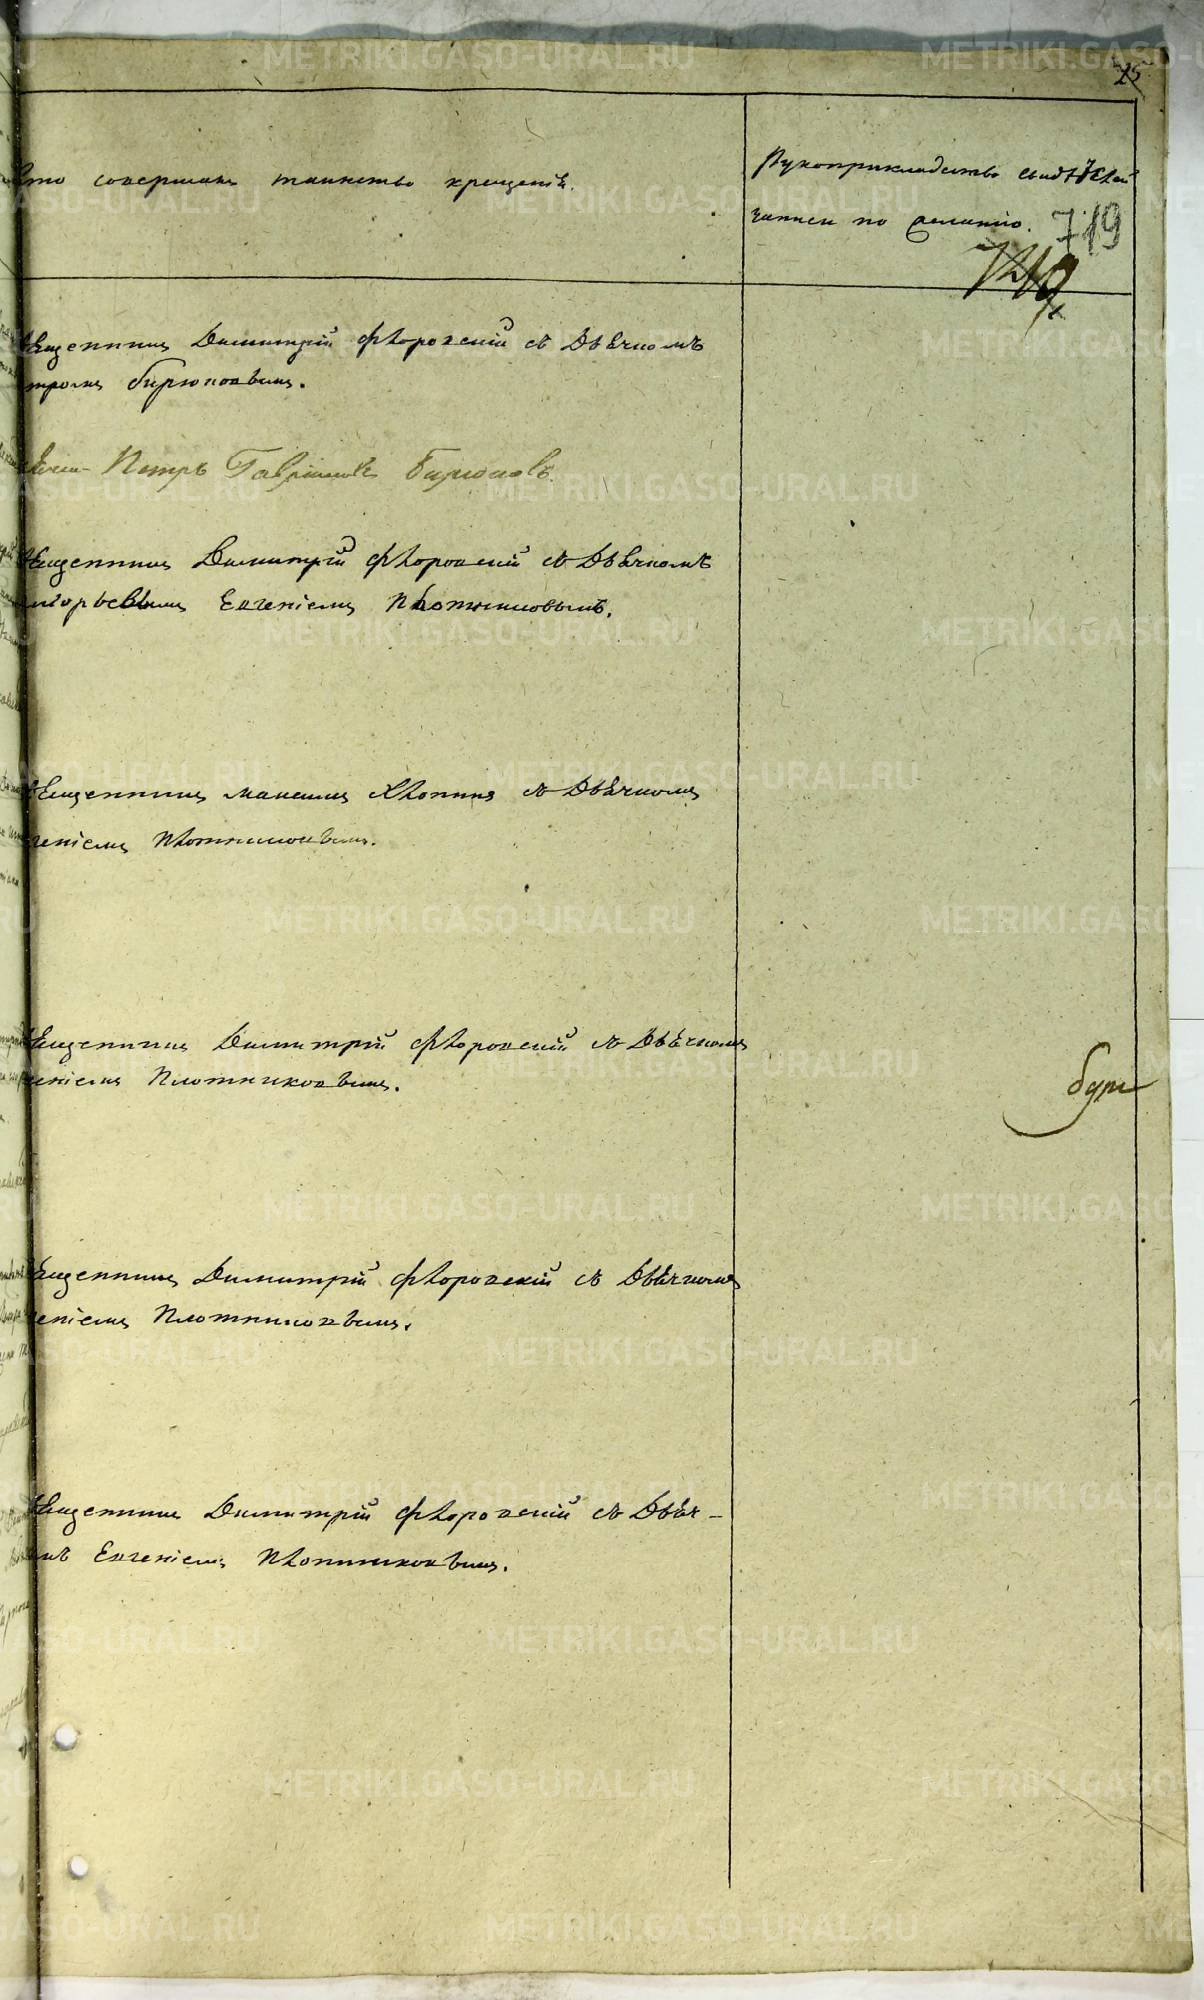 25
Кто совершалъ таинство крещенія.
Рукоприкладство свидѣтелей
записи по желанію. 719
Священникъ Димитрій Флоровскій съ Дьячкомъ
Петромъ Бирюковымъ.
Петръ Гавриловъ Бирюковъ.
Священникъ Димитрій Флоровскій съ Дьячкомъ
Евгеніемъ Плотниковымъ.
Священникъ Дьячкомъ
Евгеніемъ Плотниковымъ.
Священникъ Димитрій Флоровскій съ Дьячкомъ
Евгеніемъ Плотниковымъ.
Священникъ Димитрій Флоровскій съ Дьячкомъ
Евгеніемъ Плотниковымъ.
Священникъ Димитрій Флоровскій съ Дьяч-
комъ Евгеніемъ Плотниковымъ.
METRIKI.GASO-URAL.RU